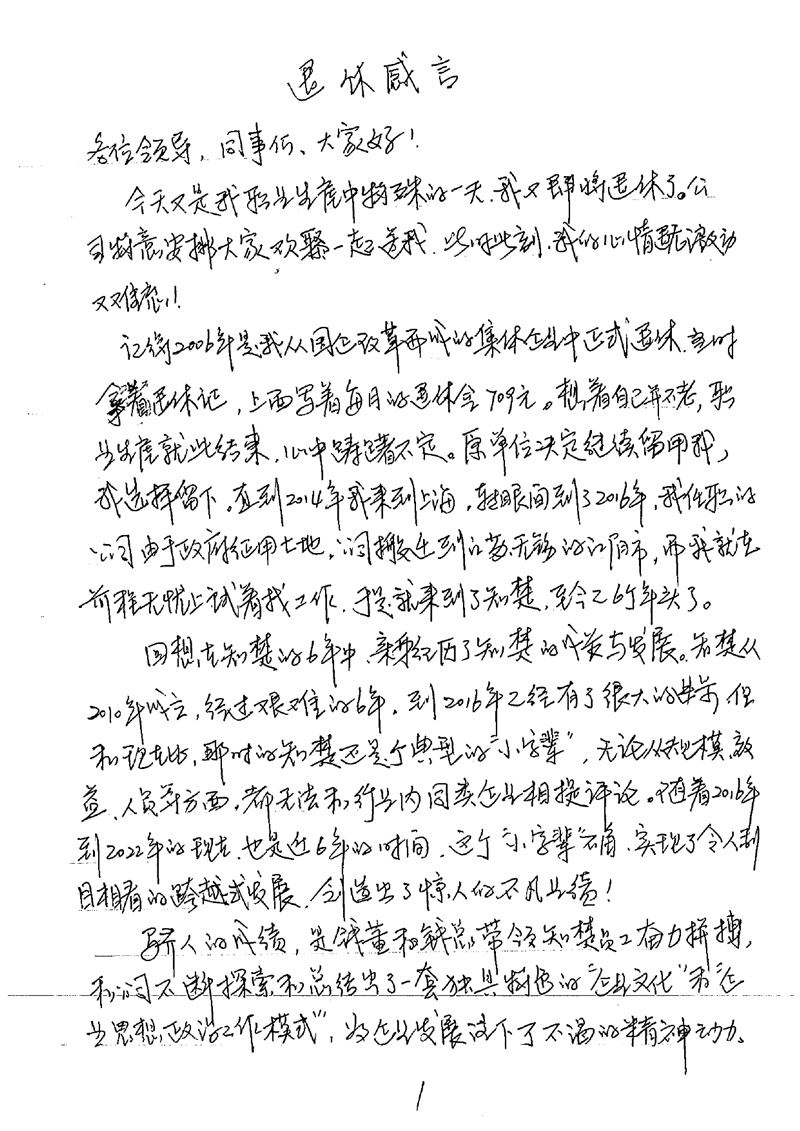 退休感言
各位领导、同事们、大家好!
今天又是我职业生涯中特殊的一天,我又即将退休了。公
司特意安排大家欢聚一起送我,此时此刻,我的心情既激动
又难忘!
记得2006年是我从国企改革而成的集体企业中正式退休,当时
拿着退休证,上面写着每月的退休金709元。想着自己并不老,职
业生涯就此结束,心中踌躇不定。原单位决定继续留用我,
我选择留下。直到2014年我来到上海,转眼间到了2016年,我任职的
公司由于政府征用土地,公司搬迁到江苏无锡的江阴市,而我就在
前程无忧上试着找工作,于是就来到了知楚,至今已6个年头了。
回想在知楚的6年中,亲身经历了知楚的成长与发展。知楚从
2010年成立,经过艰难的6年,到2016年已经有了很大的进步,但
和现在比,那时的知楚还是个典型的“小字辈”,无论从规模、效
益、人员等方面,都无法和行业内同类企业相提评论。随着2016年
到2022年的现在,也是近6年的时间,这个“小字辈”名角,实现了令人刮
目相看的跨越式发展,创造出了惊人的不凡业绩!
骄人的成绩,是钱董和钱总带领知楚员工奋力拼搏,
和公司不断探索和总结出了一套独具特色的“企业文化”和“企
业思想政治工作模式”,为企业发展注下了不竭的精神动力。
1